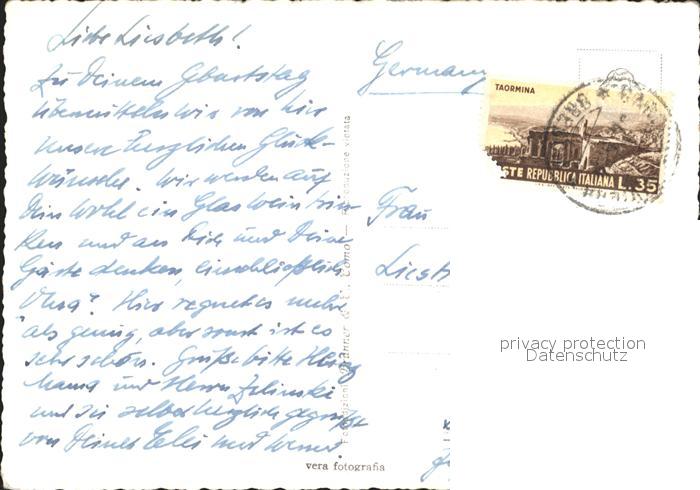 Liebe Liesbeth!
Zu Deinem Geburtstag
übermitteln wir von hier
unsere herzlichen Glück-
wünsche. Wir werden auf
Dein Wohl ein Glas Wein trin-
ken und an Dich und Deine
Gäste denken, einschließlich
Hier regnet es mehr
als genug, aber sonst ist es
sehr schön. Grüße bitte
Mama und Herrn Zelinski
und sei selbst herzlich gegrüßt
von Deiner und
Germany
Frau
Liesb
TAORMINA
STE REPUBBLICA ITALIANA L. 35
privacy protection
Datenschutz
Riproduzione vietata
vera fotografia